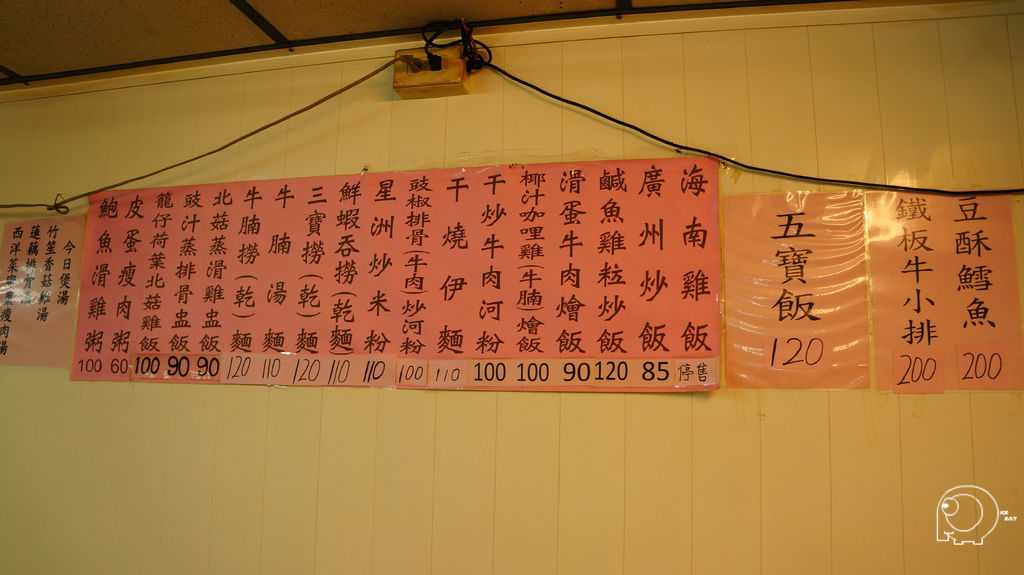 豆酥鱈魚
200
鐵板牛小排
200
五寶飯
120
海南雞飯
停售
廣州炒飯
85
鹹魚雞粒炒飯
120
滑蛋牛肉燴飯
90
椰汁咖哩雞(牛腩)燴飯
100
干炒牛肉河粉
100
干燒伊麵
110
豉椒排骨(牛肉)炒河粉
100
星洲炒米粉
110
鮮蝦吞撈(乾)麵
110
三寶撈(乾)麵
120
牛腩湯麵
110
牛腩撈(乾)麵
120
北菇蒸滑雞盅飯
90
豉汁蒸排骨盅飯
90
籠仔荷葉北菇雞飯
100
皮蛋瘦肉粥
60
鮑魚滑雞粥
100
今日煲湯
竹笙香菇雞湯
蓮藕排骨湯
西洋菜瘦肉湯